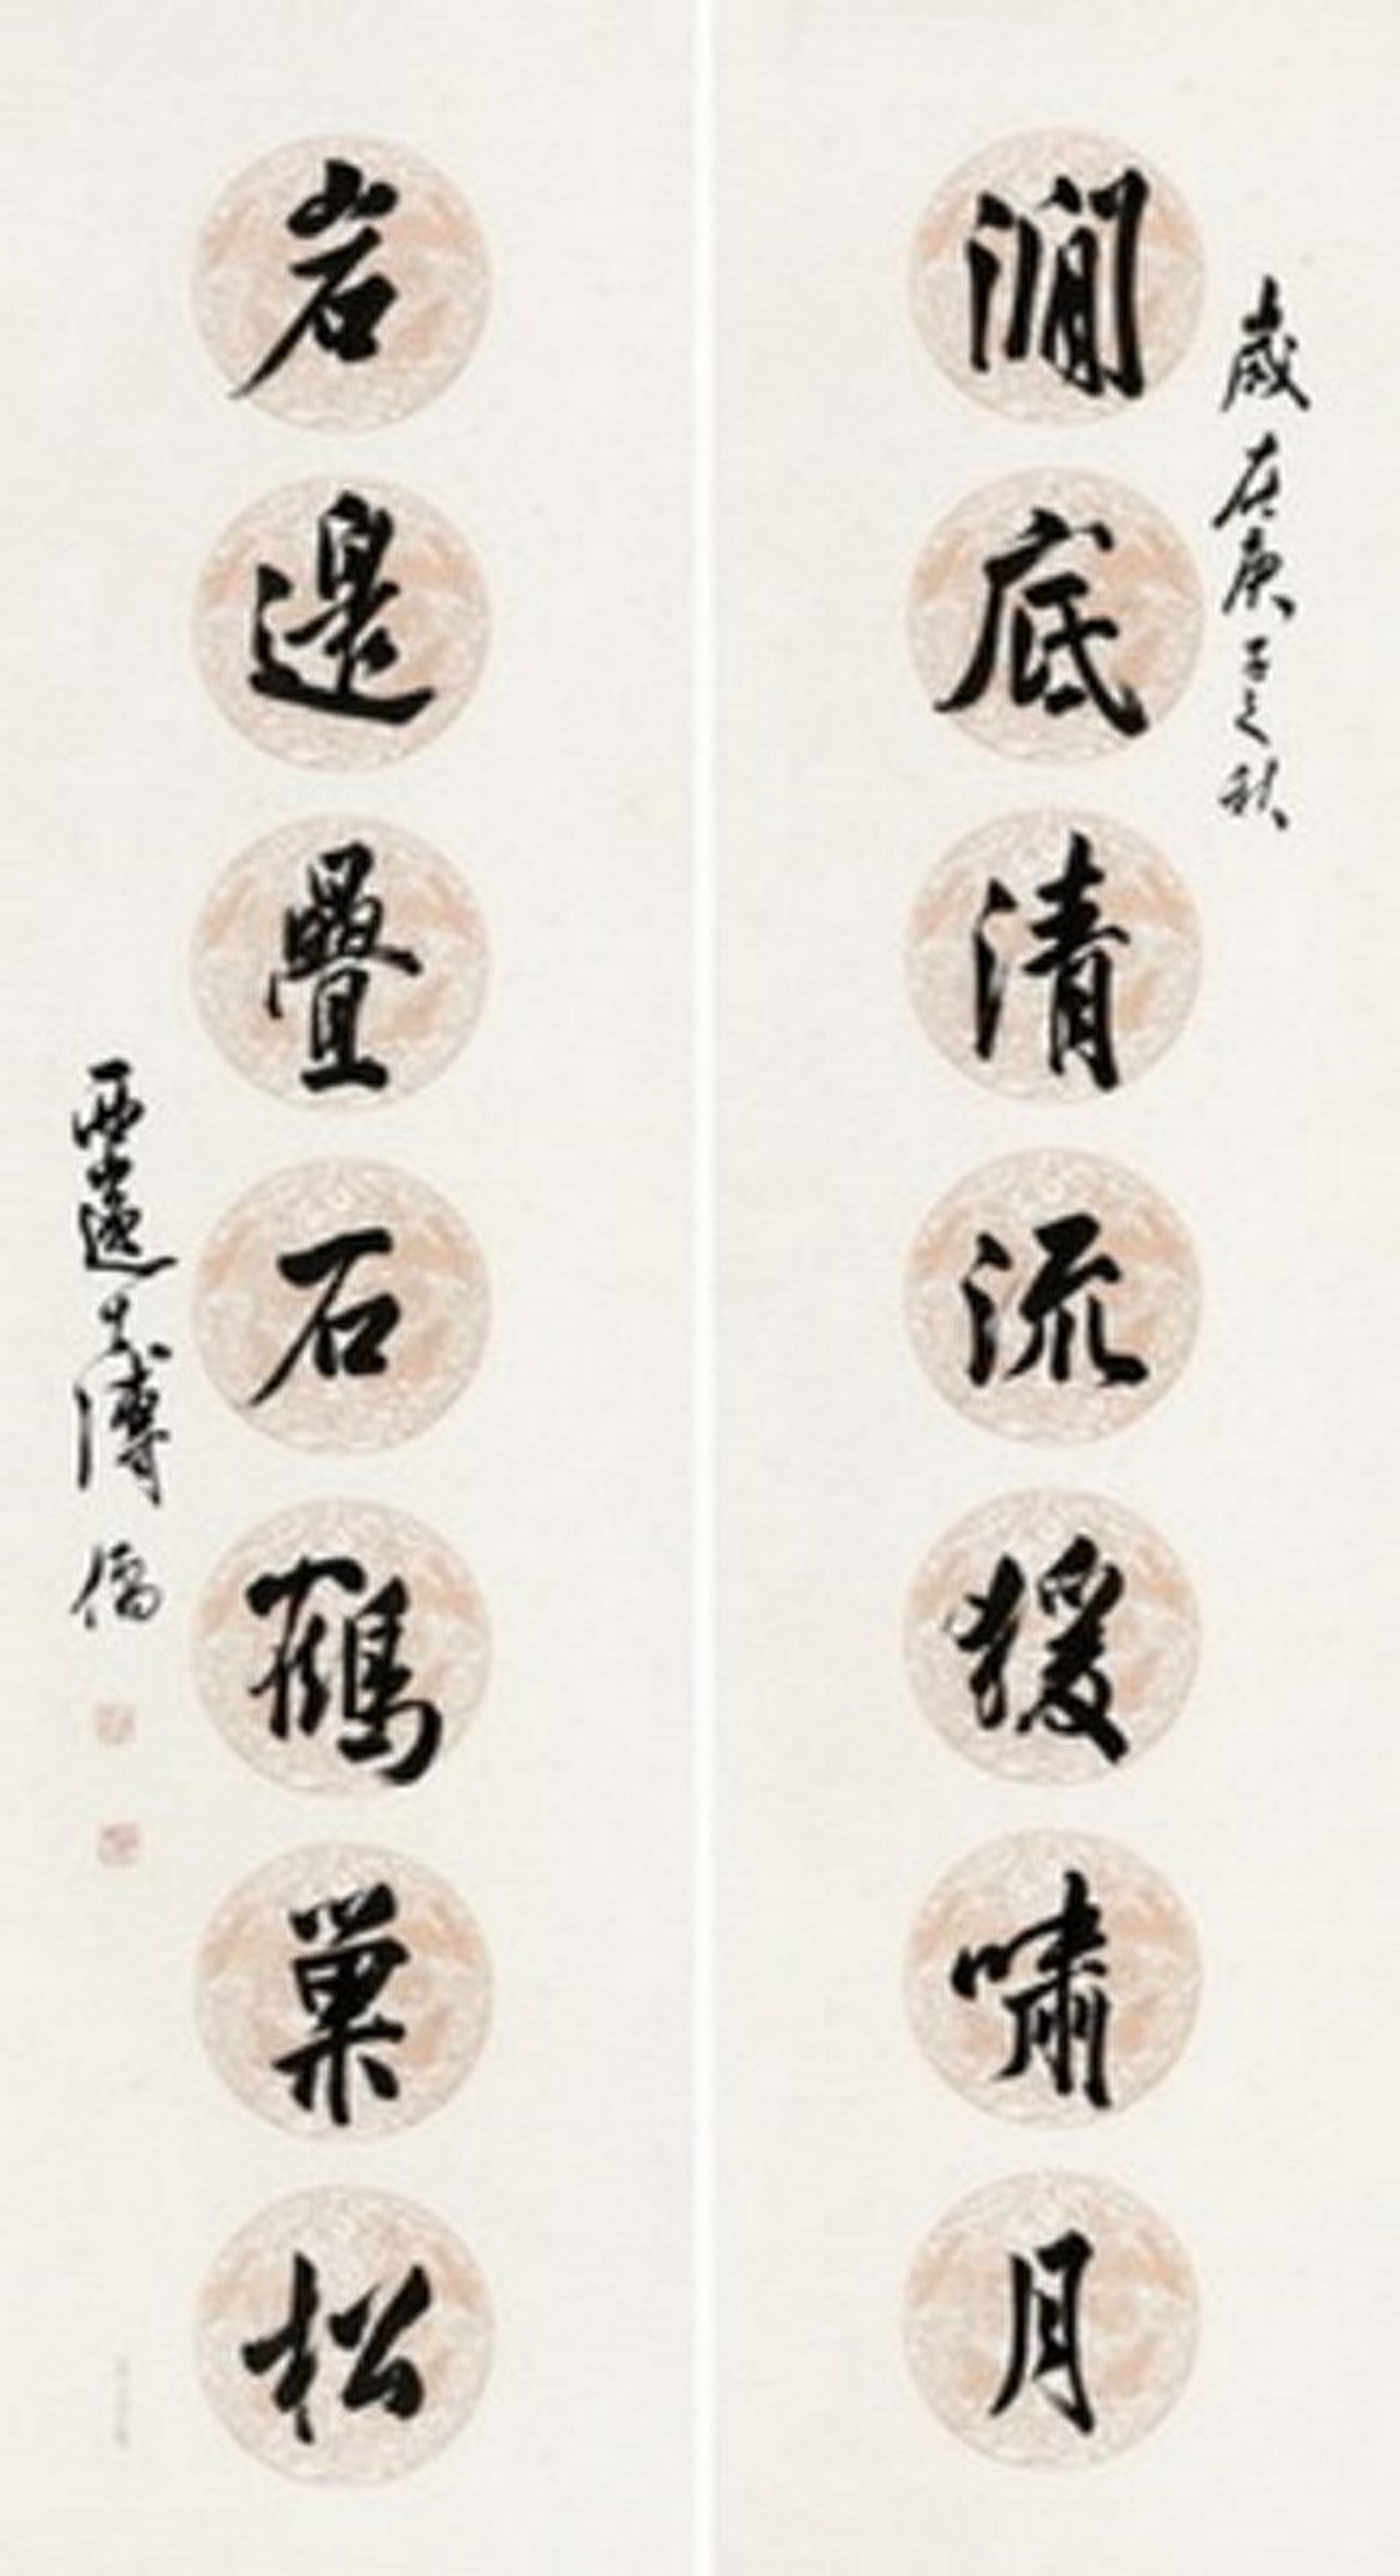 歲在庚子之秋
澗底清流猨嘯月
岩邊疊石鶴巢松
西山逸士溥儒